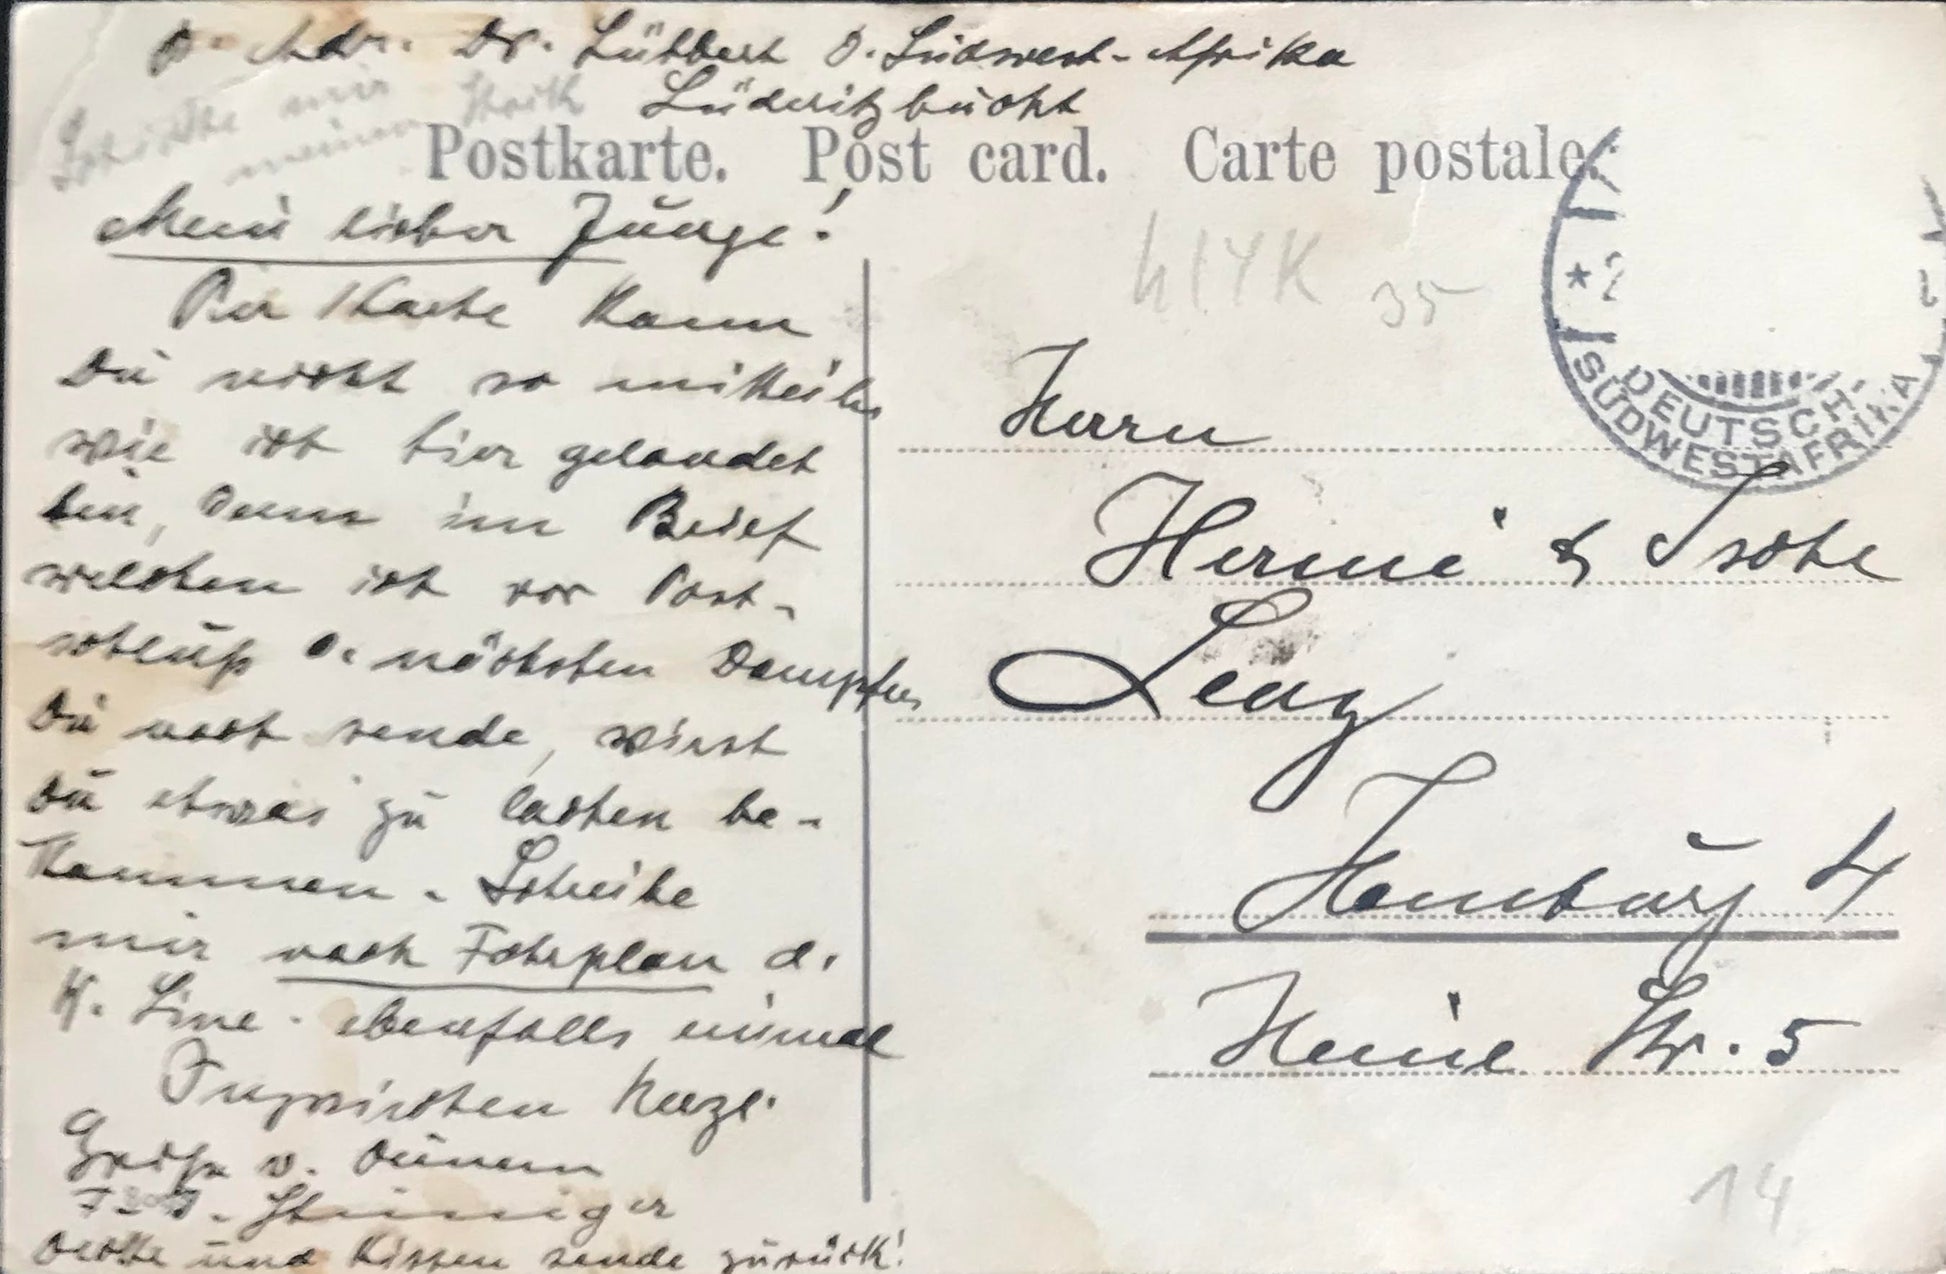 p. Adr. Dr. Lübbert D. Südwest-Afrika
Lüderitzbucht
Schicke mir
meinen Stock
Postkarte. Post card. Carte postale.
Mein lieber Junge!
Die Karte kann
Dir nicht so mitteilen
wie ich hier gelandet
bin, denn im Brief
welchen ich vor Post-
schluß d. nächsten Dampfers
Dir noch sende, wirst
Du etwas zu lachen be-
kommen. Schreibe
mir nach Fahrplan d.
W. Linie. ebenfalls einmal
Inzwischen herzl.
Grüße v. Deinem
Steiniger
Decke und Kissen sende zurück!
35
* 2
DEUTSCH-
SÜDWESTAFRIKA
Herrn
Hermi &
Lenz
Hamburg 4
Heine Str. 5
14